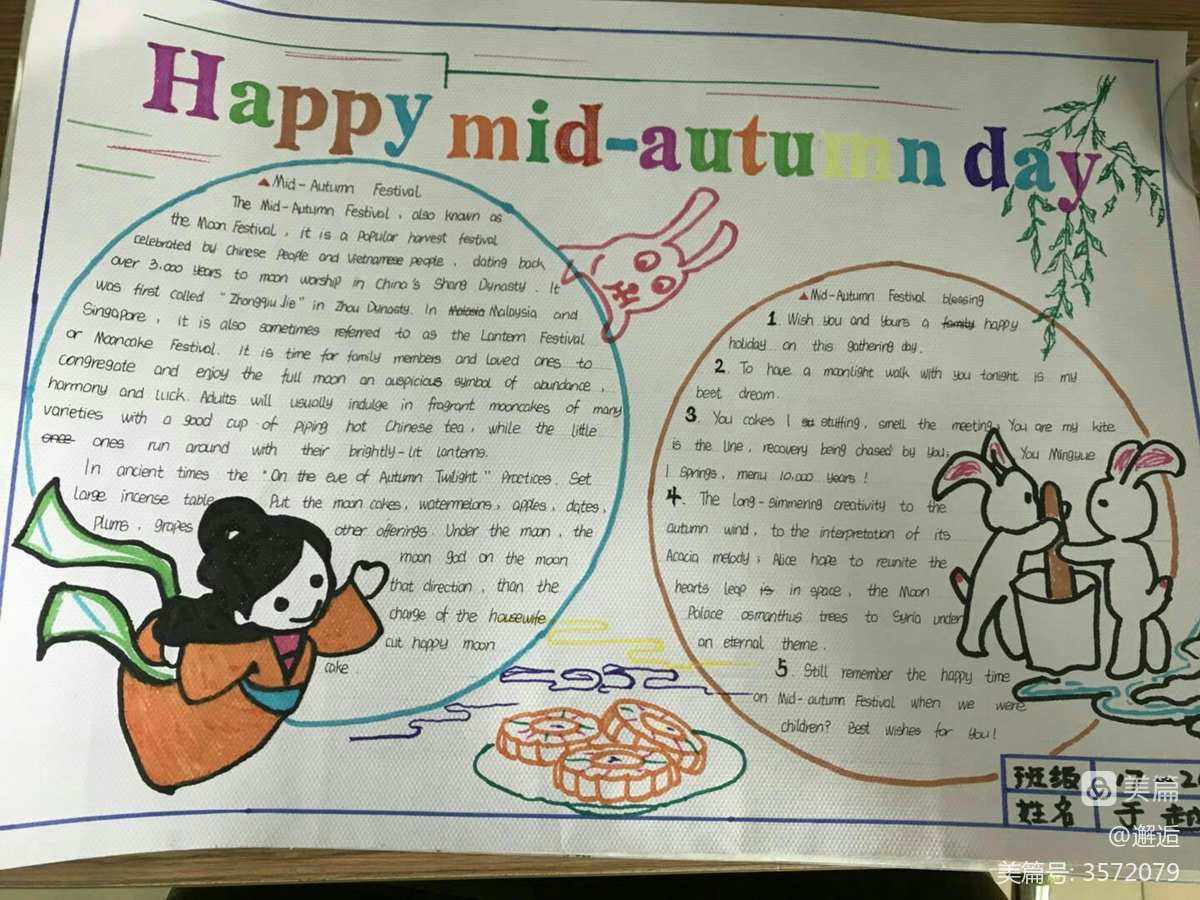 Happy mid-autumn day
Mid-Autumn Festival
The Mid-Autumn Festival, also known as
the Moon Festival, it is a popular harvest festival
celebrated by Chinese People and Vietnamese people, dating back
over 3,000 years to moon worship in China's Shang Dynasty. It
was first called "Zhongqiu Jie" in Zhou Dynasty. In Malasia Malaysia and
Singapore, it is also sometimes referred to as the Lantern Festival
or Mooncake Festival. It is time for family members and loved ones to
congregate and enjoy the full moon an auspicious symbol of abundance,
harmony and luck. Adults will usually indulge in fragrant mooncakes of many
varieties with a good cup of piping hot Chinese tea, while the little
once ones run around with their brightly-lit lanterns.
In ancient times the "On the eve of Autumn Twilight" Practices. Set
large incense table Put the moon cakes, watermelons, apples, dates,
Plums, grapes other offerings. Under the moon, the
moon god on the moon
that direction, than the
charge of the housewife
cut happy moon
cake.
Mid-Autumn Festival blessing
1. Wish you and yours a family happy
holiday on this gathering day.
2. To have a moonlight walk with you tonight is my
beet dream.
3. You cakes I stuffing, smell the meeting; You are my kite
is the line, recovery being chased by you; You Mingyue
I springs, menu 10,000 years!
4. The long-simmering creativity to the
autumn wind, to the interpretation of its
Acacia melody; Alice hope to reunite the
hearts leap is in space, the Moon
Palace osmanthus trees to Syria under
an eternal theme.
5. Still remember the happy time
on Mid-autumn Festival when we were
children? Best wishes for you!
班级
姓名 于
美篇
@邂逅
美篇号: 3572079